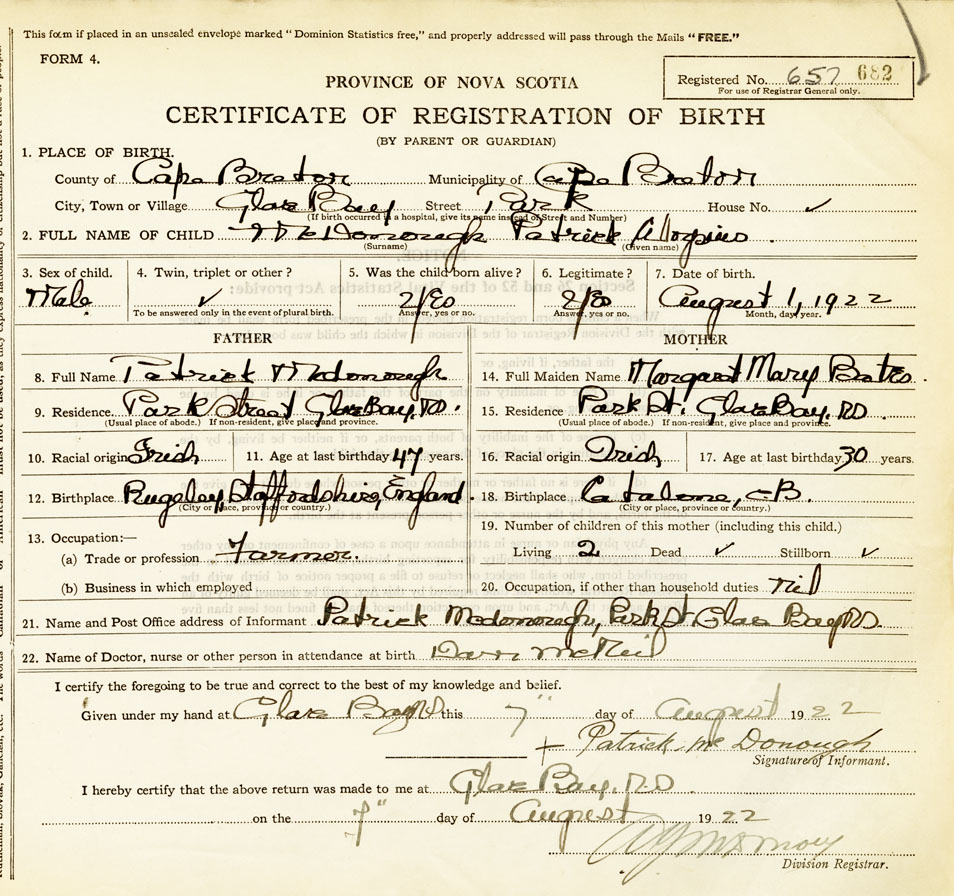 This form if placed in an unsealed envelope marked "Dominion Statistics free," and properly addressed will pass through the Mails "FREE."
FORM 4.
PROVINCE OF NOVA SCOTIA
Registered No. 657 682
For use of Registrar General only.
CERTIFICATE OF REGISTRATION OF BIRTH
(BY PARENT OR GUARDIAN)
1. PLACE OF BIRTH.
County of Cape Breton Municipality of Cape Breton
City, Town or Village Glace Bay Street Park House No. ✓
(If birth occured in a hospital, give its name instead of Street and Number)
2. FULL NAME OF CHILD McDonough Patrick Alloysius.
(Surname) (Given name)
3. Sex of child. 4. Twin, triplet or other? 5. Was the child born alive? 6. Legitimate? 7. Date of birth.
Male ✓ Yes Yes August 1, 1922
To be answered only in the event of plural birth. Answer, yes or no. Answer, yes or no. Month, day, year.
FATHER MOTHER
8. Full Name Patrick Mcdonough 14. Full Maiden Name Margaret Mary Bates.
9. Residence Park Street Glace Bay, RD. 15. Residence Park St. Glace Bay, RD
(Usual place of abode.) If non-resident, give place and province. (Usual place of abode.) If non-resident, give place and province.
10. Racial origin Irish 11. Age at last birthday 47 years. 16. Racial origin Irish 17. Age at last birthday 30 years.
12. Birthplace Rugeley, Staffordshire, England. 18. Birthplace Catalone, C.B.
(City or place, province or country.) (City or place, province or country.)
13. Occupation:— 19. Number of children of this mother (including this child.)
(a) Trade or profession Farmer. Living 2 Dead ✓ Stillborn ✓
(b) Business in which employed 20. Occupation, if other than household duties nil
21. Name and Post Office address of Informant Patrick Mcdonough, Park St. Glace Bay RD.
22. Name of Doctor, nurse or other person in attendance at birth McNeil
I certify the foregoing to be true and correct to the best of my knowledge and belief.
Given under my hand at Glace Bay RD this 7" day of August 1922
+ Patrick Mc Donough
Signature of Informant.
I hereby certify that the above return was made to me at Glace Bay, RD
on the 7" day of August 1922
Division Registrar.